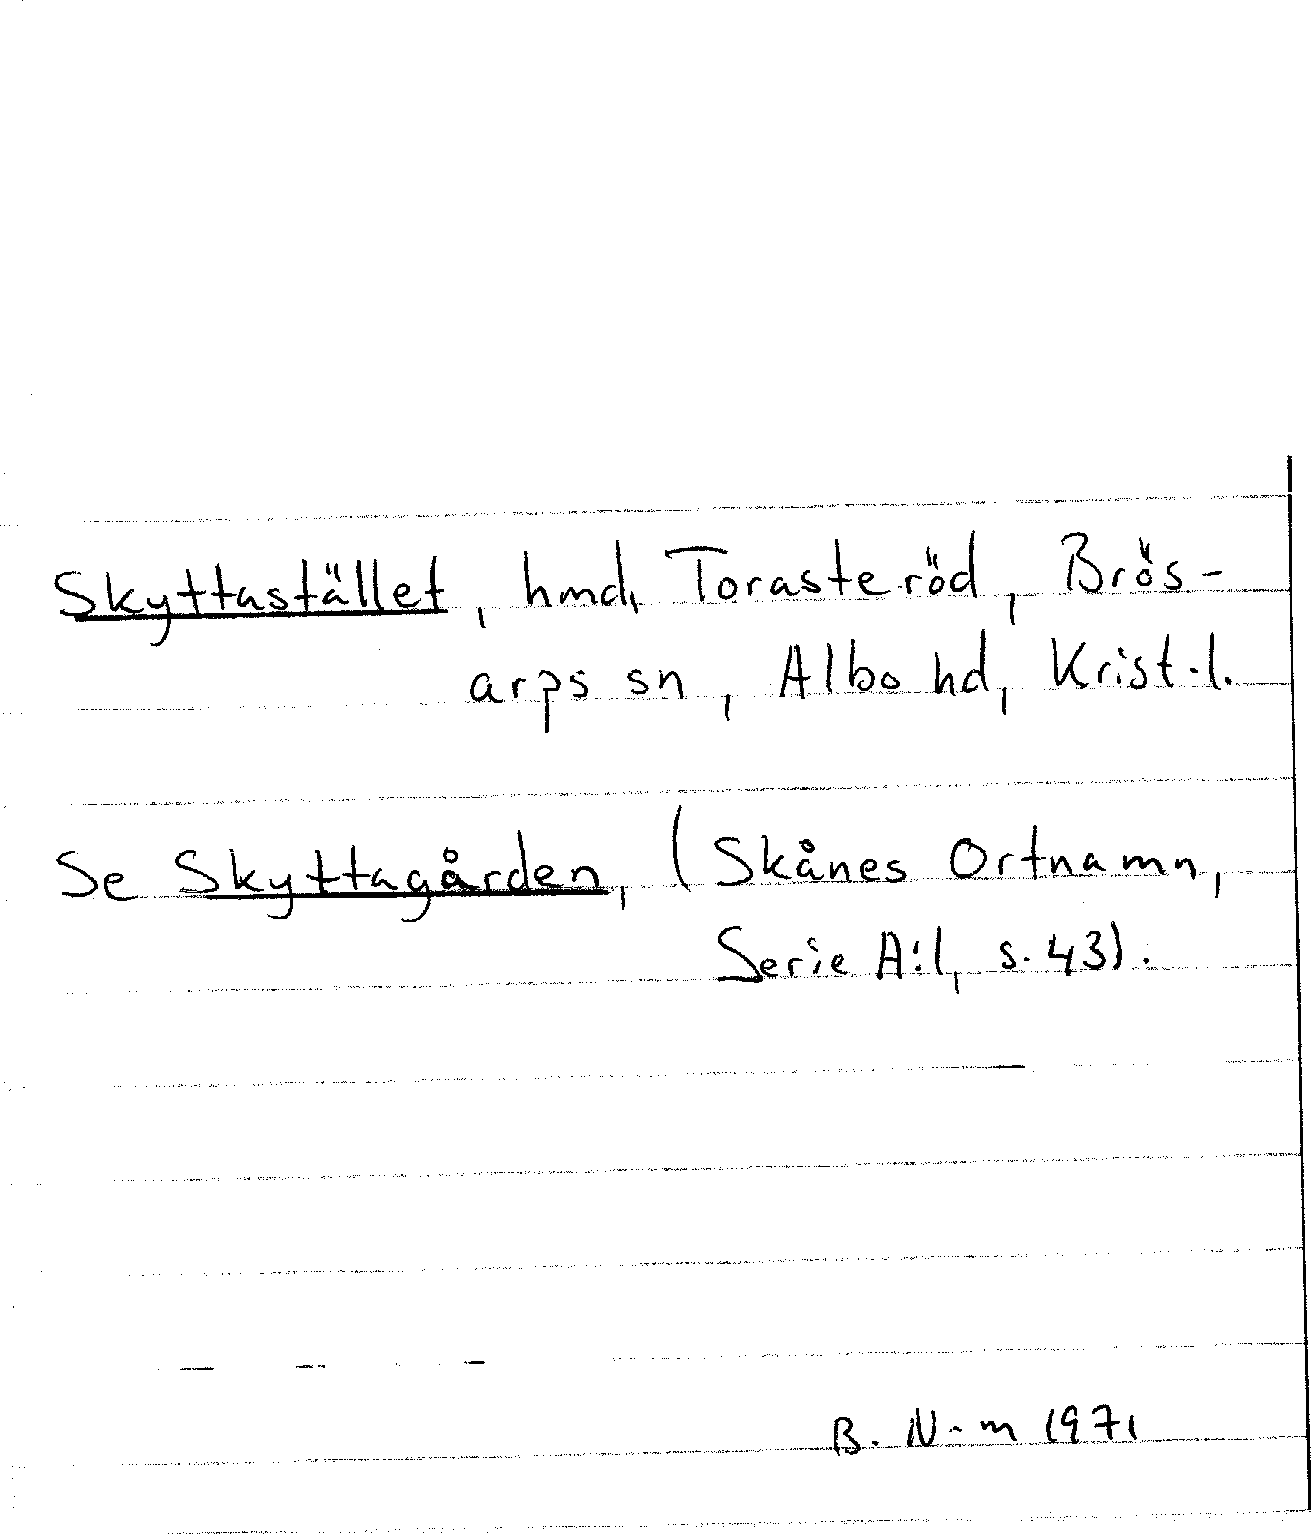 Skyttastället, hmd, Torasteröd, Brös-
arps sn, Albo hd, Krist.l.
Se Skyttagården, (Skånes Ortnamn,
Serie A:1, s. 43).
B. N-m 1971